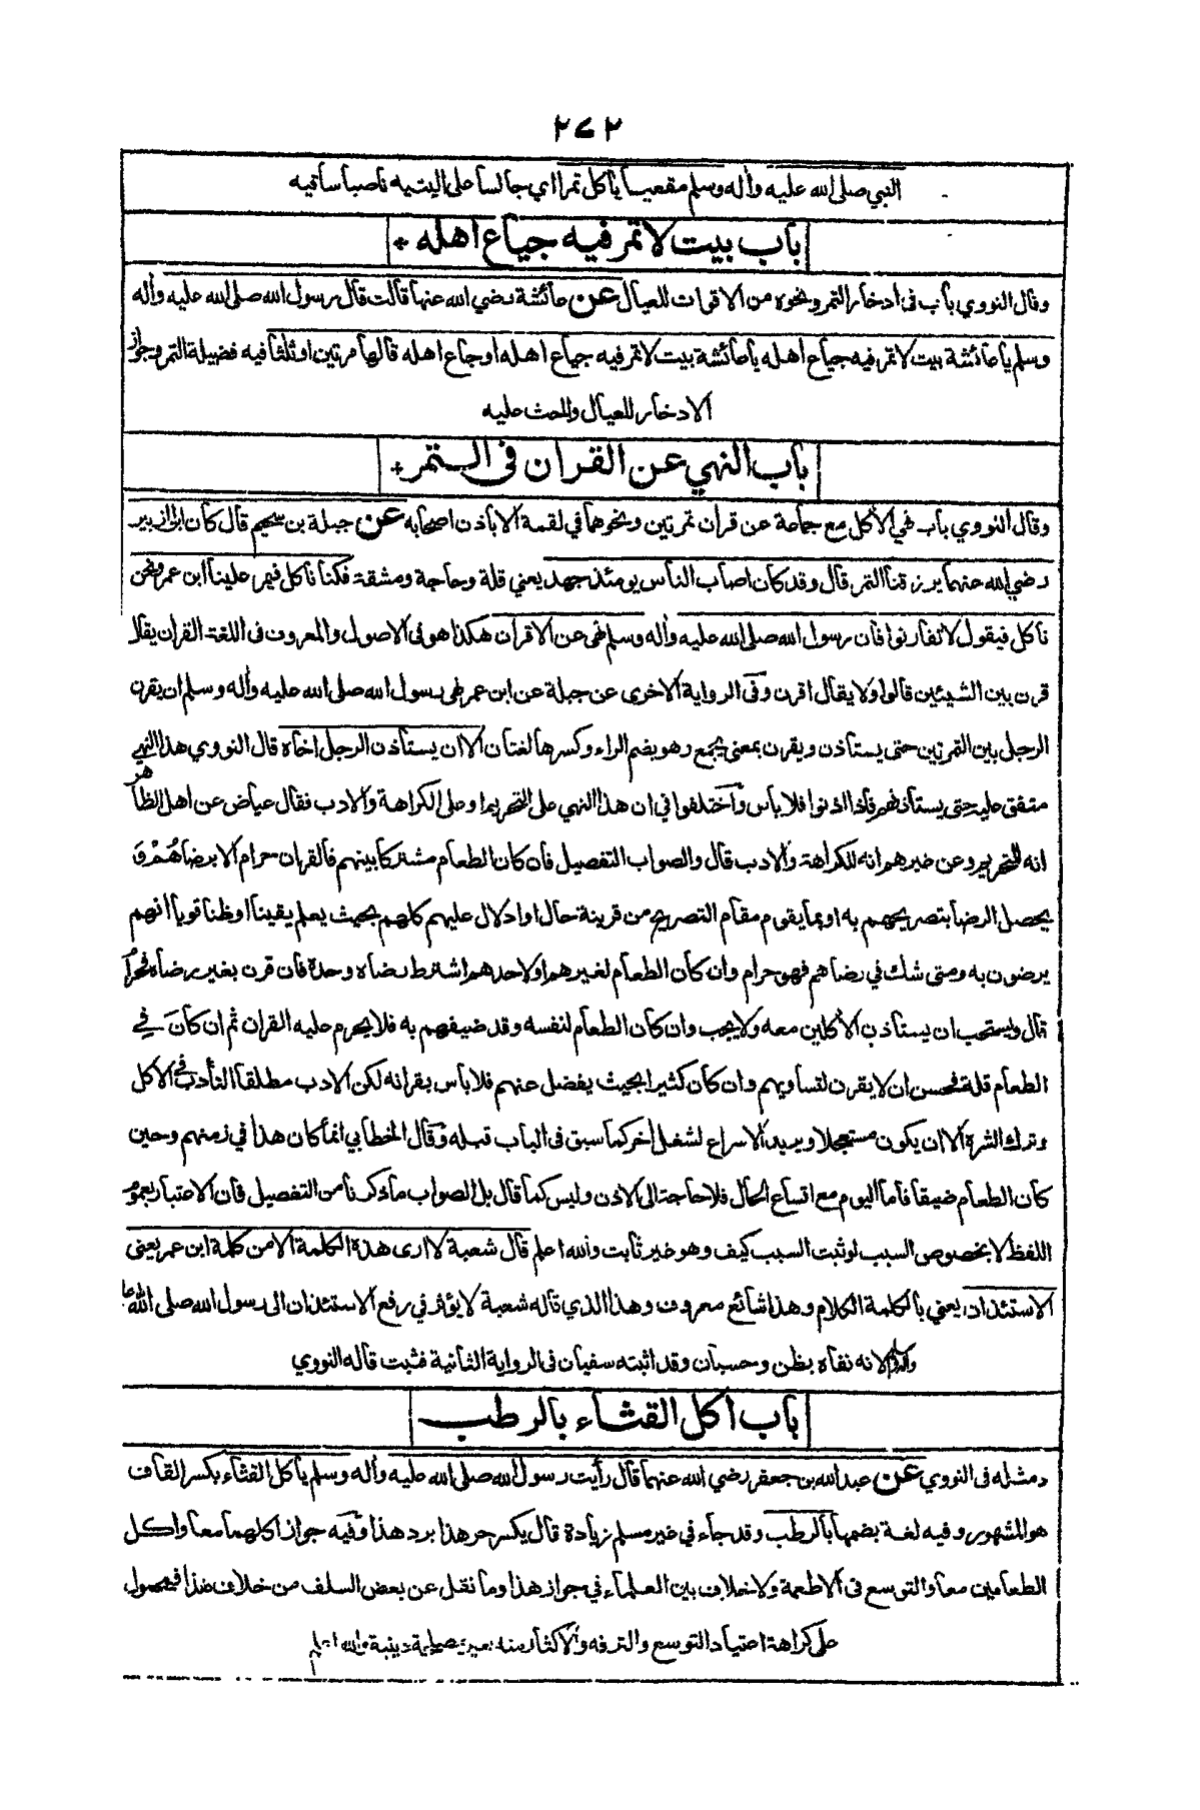 ٢٧٢
النبي صلى الله عليه وأله وسلم مقعيا يأكل تمرا اي جالسا على اليتيه ناصبا ساقيه
باب بيت لا تمر فيه جياع اهله +
وقال النووي باب في ادخار التمر ونحوه من الاقوات للعيال عن عائشة رضي الله عنها قالت قال رسول الله صلى الله عليه وأله
وسلم يا عائشة بيت لا تمر فيه جياع اهله يا عائشة بيت لا تمر فيه جياع اهله او جاع اهله قالها مرتين او ثلثا فيه فضيلة التمر وجواز
الادخار للعيال والحث عليه
باب النهي عن القران في التمر +
وقال النووي باب نهي الأكل مع جماعة عن قران تمرتين ونحوهما في لقمة الا باذن اصحابه عن جبلة بن سحيم قال كان ابن الزبير
رضي الله عنهما يرزقنا التمر قال وقد كان اصاب الناس يومئذ جهد يعني قلة وحاجة ومشقة فكنا نأكل فيمر علينا ابن عمر ونحن
نأكل فيقول لا تقارنوا فان رسول الله صلى الله عليه وأله وسلم نهى عن الاقران هكذا هو في الاصول والمعروف في اللغة القران يقال
قرن بين الشيئين قالوا ولا يقال اقرن وفي الرواية الاخرى عن جبلة عن ابن عمر نهى رسول الله صلى الله عليه وأله وسلم ان يقرن
الرجل بين التمرتين حتى يستأذن ويقرن بمعنى يجمع وهو بضم الراء وكسرها لغتان الا ان يستأذن الرجل اخاه قال النووي هذا النهي
متفق عليه حتى يستأذنهم فاذا اذنوا فلا بأس واختلفوا في ان هذا النهي على التحريم او على الكراهة والادب فنقال عياض عن اهل الظاهر
انه للتحريم وعن غيرهم انه للكراهة والادب قال والصواب التفصيل فان كان الطعام مشتركا بينهم فالقران حرام الا برضاهم و
يحصل الرضا بتصريحهم به او بما يقوم مقام التصريح من قرينة حال او ادلال عليهم كلهم بحيث يعلم يقينا او ظنا قويا انهم
يرضون به ومتى شك في رضاهم فهو حرام وان كان الطعام لغيرهم او لاحدهم اشترط رضاه وحدة فان قرن بغير رضاه فحرام
قال ويستحب ان يستأذن الأكلين معه ولا يجب وان كان الطعام لنفسه وقد ضيفهم به فلا يحرم عليه القران ثم ان كان في
الطعام قلة فحسن ان لا يقرن لتساويهم وان كان كثيرا بحيث يفضل عنهم فلا بأس بقرانه لكن الادب مطلقا التأدب في الاكل
وترك الشره الا ان يكون مستعجلا ويريد الاسراع لشغل أخر كما سبق في الباب قبله وقال الخطابي انما كان هذا في زمنهم وحين
كان الطعام ضيقا فاما اليوم مع اتساع الحال فلا حاجة الى الاذن وليس كما قال بل الصواب ما ذكرنا من التفصيل فان الاعتبار بعموم
اللفظ لا بخصوص السبب لو ثبت السبب كيف وهو غير ثابت والله اعلم قال شعبة لا ارى هذة الكلمة الا من كلمة ابن عمر يعني
الاستئذان يعني بالكلمة الكلام وهذا شائع معروف وهذا الذي قاله شعبة لا يؤثر في رفع الاستئذان الى رسول الله صلى الله عليه
وأله وسلم لانه نفاه بظن وحسبان وقد اثبته سفيان في الرواية الثانية فثبت قاله النووي
باب اكل القثاء بالرطب
ومثله في النووي عن عبد الله بن جعفر رضي الله عنهما قال رأيت رسول الله صلى الله عليه وأله وسلم يأكل القثاء بكسر القاف
هو المشهور وفيه لغة بضمها بالرطب وقد جاء في غير مسلم زيادة قال يكسر حر هذا برد هذا وفيه جواز اكلهما معا واكل
الطعامين معا والتوسع في الاطعمة ولا خلاف بين العلماء في جواز هذا وما نقل عن بعض السلف من خلاف هذا فمحمول
على كراهة اعتياد التوسع والترفه والاكثار منه بغير مصلحة دينية والله اعلم